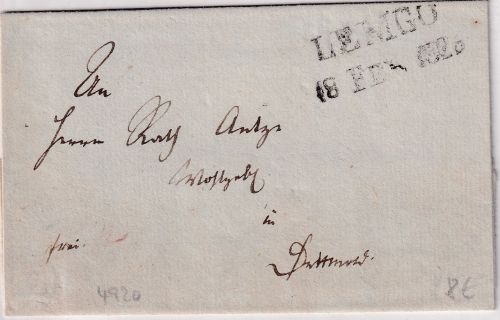 LEMGO
18 FEB
An
Herrn Rath Antze
Wohlgeb
in
Dettmold.
frei.
4920
8€